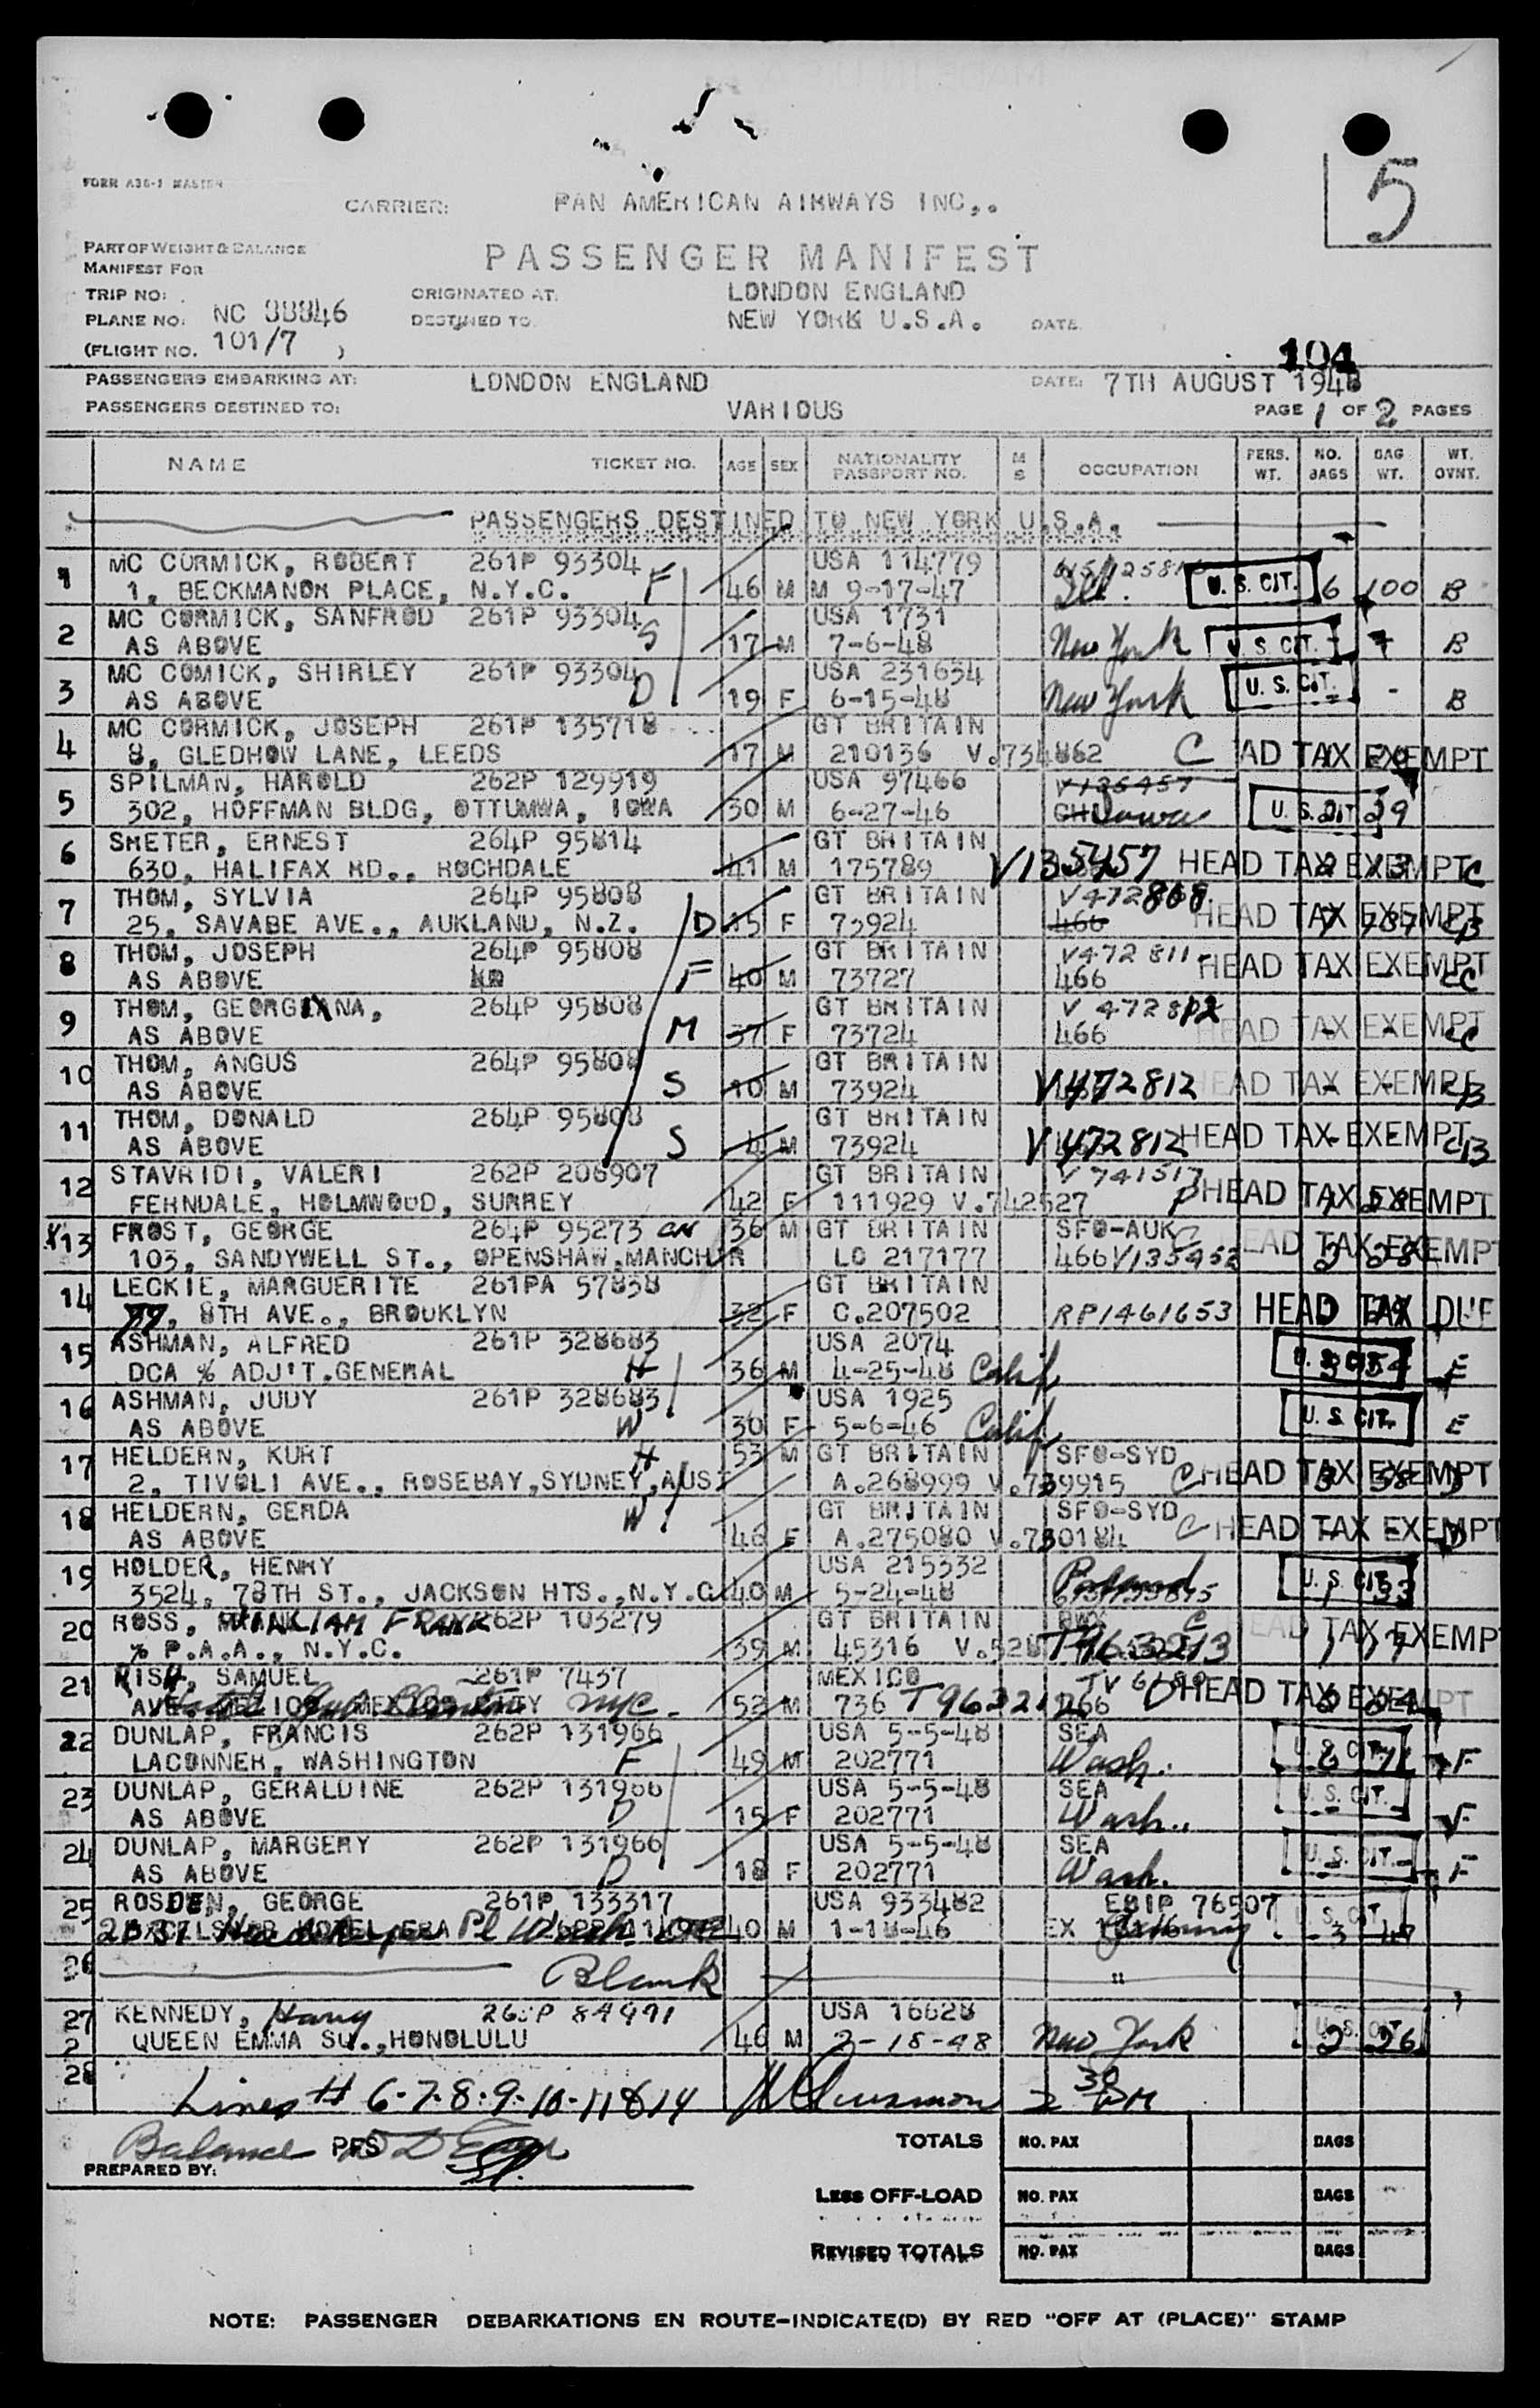 5
FORM A36-1 MASTER
CARRIER: PAN AMERICAN AIRWAYS INC,.
PART OF WEIGHT & BALANCE
MANIFEST FOR
PASSENGER MANIFEST
TRIP NO: ORIGINATED AT: LONDON ENGLAND
PLANE NO: NC 88846 DESTINED TO: NEW YORK U.S.A. DATE
(FLIGHT NO. 101/7 )
104
PASSENGERS EMBARKING AT: LONDON ENGLAND DATE: 7TH AUGUST 1948
PASSENGERS DESTINED TO: VARIOUS PAGE 1 OF 2 PAGES
NAME TICKET NO. AGE SEX NATIONALITY PASSPORT NO. M S OCCUPATION PERS. WT. NO. BAGS BAG WT. WT. OVNT.
PASSENGERS DESTINED TO NEW YORK U.S.A.
1 MC CORMICK, ROBERT 261P 93304 USA 114779
1, BECKMANON PLACE, N.Y.C. F 46 M M 9-17-47 Ill. U. S. CIT. 6 100 B
2 MC CORMICK, SANFROD 261P 93304 USA 1731
AS ABOVE S 17 M 7-6-48 New York U. S. CIT. B
3 MC COMICK, SHIRLEY 261P 93304 USA 231634
AS ABOVE D 19 F 6-15-48 New York U. S. CIT. - B
4 MC CORMICK, JOSEPH 261P 135718 GT BRITAIN
8, GLEDHOW LANE, LEEDS 17 M 210136 V.734862 C AD TAX EXEMPT
5 SPILMAN, HAROLD 262P 129919 USA 97466 V135457
302, HOFFMAN BLDG, OTTUMWA, IOWA 30 M 6-27-46 Iowa U. S. CIT. 2 29
6 SMETER, ERNEST 264P 95814 GT BRITAIN
630, HALIFAX RD., ROCHDALE 41 M 175789 V135457 HEAD TAX EXEMPT C
7 THOM, SYLVIA 264P 95808 GT BRITAIN V472808
25, SAVABE AVE., AUKLAND, N.Z. D 15 F 73924 466 HEAD TAX EXEMPT
8 THOM, JOSEPH 264P 95808 GT BRITAIN V472811
AS ABOVE F 40 M 73727 466 HEAD TAX EXEMPT
9 THOM, GEORGIANA, 264P 95808 GT BRITAIN V 472812
AS ABOVE M 37 F 73724 466 HEAD TAX EXEMPT
10 THOM, ANGUS 264P 95808 GT BRITAIN
AS ABOVE S 10 M 73924 V472812 HEAD TAX EXEMPT
11 THOM, DONALD 264P 95808 GT BRITAIN
AS ABOVE S 4 M 73924 V472812 HEAD TAX EXEMPT
12 STAVRIDI, VALERI 262P 206907 GT BRITAIN V 741517
FERNDALE, HOLMWOOD, SURREY 42 F 111929 V.742527 HEAD TAX EXEMPT
X13 FROST, GEORGE 264P 95273 36 M GT BRITAIN SFO-AUK
103, SANDYWELL ST., OPENSHAW,MANCH'R LO 217177 466 V135452 HEAD TAX EXEMPT
14 LECKIE, MARGUERITE 261PA 57838 GT BRITAIN
77, 8TH AVE., BROOKLYN 32 F C.207502 RP1461653 HEAD TAX DUE
15 ASHMAN, ALFRED 261P 328683 USA 2074
DCA % ADJ'T.GENERAL H 36 M 4-25-48 Calif U. S. CIT. E
16 ASHMAN, JUDY 261P 328683 USA 1925
AS ABOVE W 30 F 5-6-46 Calif U. S. CIT. E
17 HELDERN, KURT H 53 M GT BRITAIN SFO-SYD
2, TIVOLI AVE., ROSEBAY,SYDNEY,AUST A.268999 V.739915 C HEAD TAX EXEMPT
18 HELDERN, GERDA W GT BRITAIN SFO-SYD
AS ABOVE 46 F A.275080 V.730184 C HEAD TAX EXEMPT
19 HOLDER, HENRY USA 215332
3524, 78TH ST., JACKSON HTS.,N.Y.C 40 M 5-24-48 Poland U. S. CIT. 1 33
20 ROSS, WILLIAM FRANK 262P 103279 GT BRITAIN
% P.A.A., N.Y.C. 39 M 45316 T963213 HEAD TAX EXEMPT
21 RISH, SAMUEL 261P 7437 MEXICO
NYC. 52 M 736 HEAD TAX EXEMPT
22 DUNLAP, FRANCIS 262P 131966 USA 5-5-48 SEA
LACONNER, WASHINGTON F 49 M 202771 Wash. U. S. CIT. F
23 DUNLAP, GERALDINE 262P 131966 USA 5-5-48 SEA
AS ABOVE D 15 F 202771 Wash. U. S. CIT. F
24 DUNLAP, MARGERY 262P 131966 USA 5-5-48 SEA
AS ABOVE D 18 F 202771 Wash. U. S. CIT. F
25 ROSDEN, GEORGE 261P 133317 USA 933482 EBIP 76507
40 M 1-18-46 Germany U. S. CIT. 3 47
26 Blank "
27 KENNEDY, Harry 262P 84491 USA 16628
QUEEN EMMA SQ.,HONOLULU 46 M 2-18-48 New York U. S. CIT. 2 26
28 Lines # 6-7-8-9-10-11 & 14 2 30 PM
Balance
PREPARED BY:
TOTALS NO. PAX BAGS
LESS OFF-LOAD NO. PAX BAGS
REVISED TOTALS NO. PAX BAGS
NOTE: PASSENGER DEBARKATIONS EN ROUTE-INDICATE(D) BY RED "OFF AT (PLACE)" STAMP